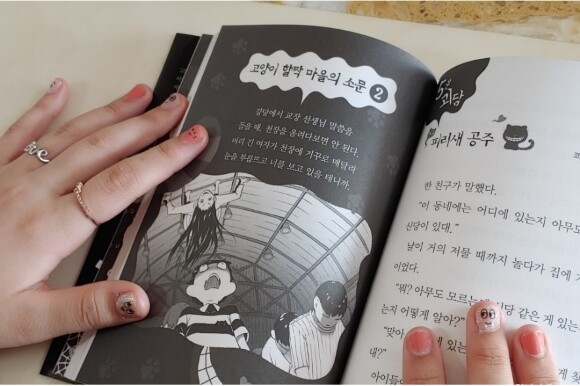 고양이 할딱 마을의 소문 2
강당에서 교장 선생님 말씀을
들을 때, 천장을 올려다보면 안 된다.
머리 긴 여자가 천장에 거꾸로 매달려
눈을 부릅뜨고 너를 보고 있을 테니까.
괴담
피리새 공주
한 친구가 말했다.
"이 동네에는 어디에 있는지 아무도
신당이 있대."
날이 거의 저물 때까지 놀다가 집에
이었다.
"뭐? 아무도 모르는 신당 같은 게 있
는지 어떻게 알아?"
"맞아
게 있는
내?"
아이들